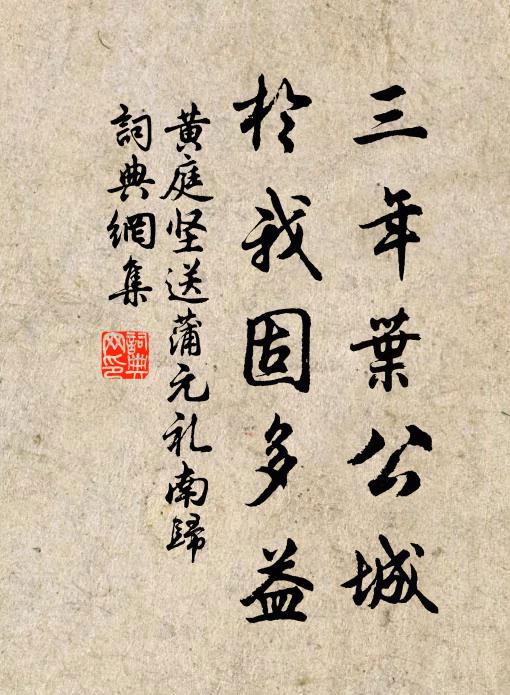 三年葉公城
於我固多益
黄庭坚送蒲元礼南歸
詞典網集
詞典網印